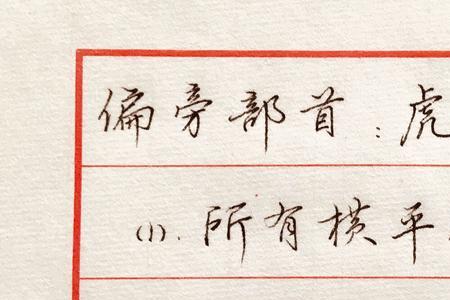 偏旁部首：虎
(1). 所有横平